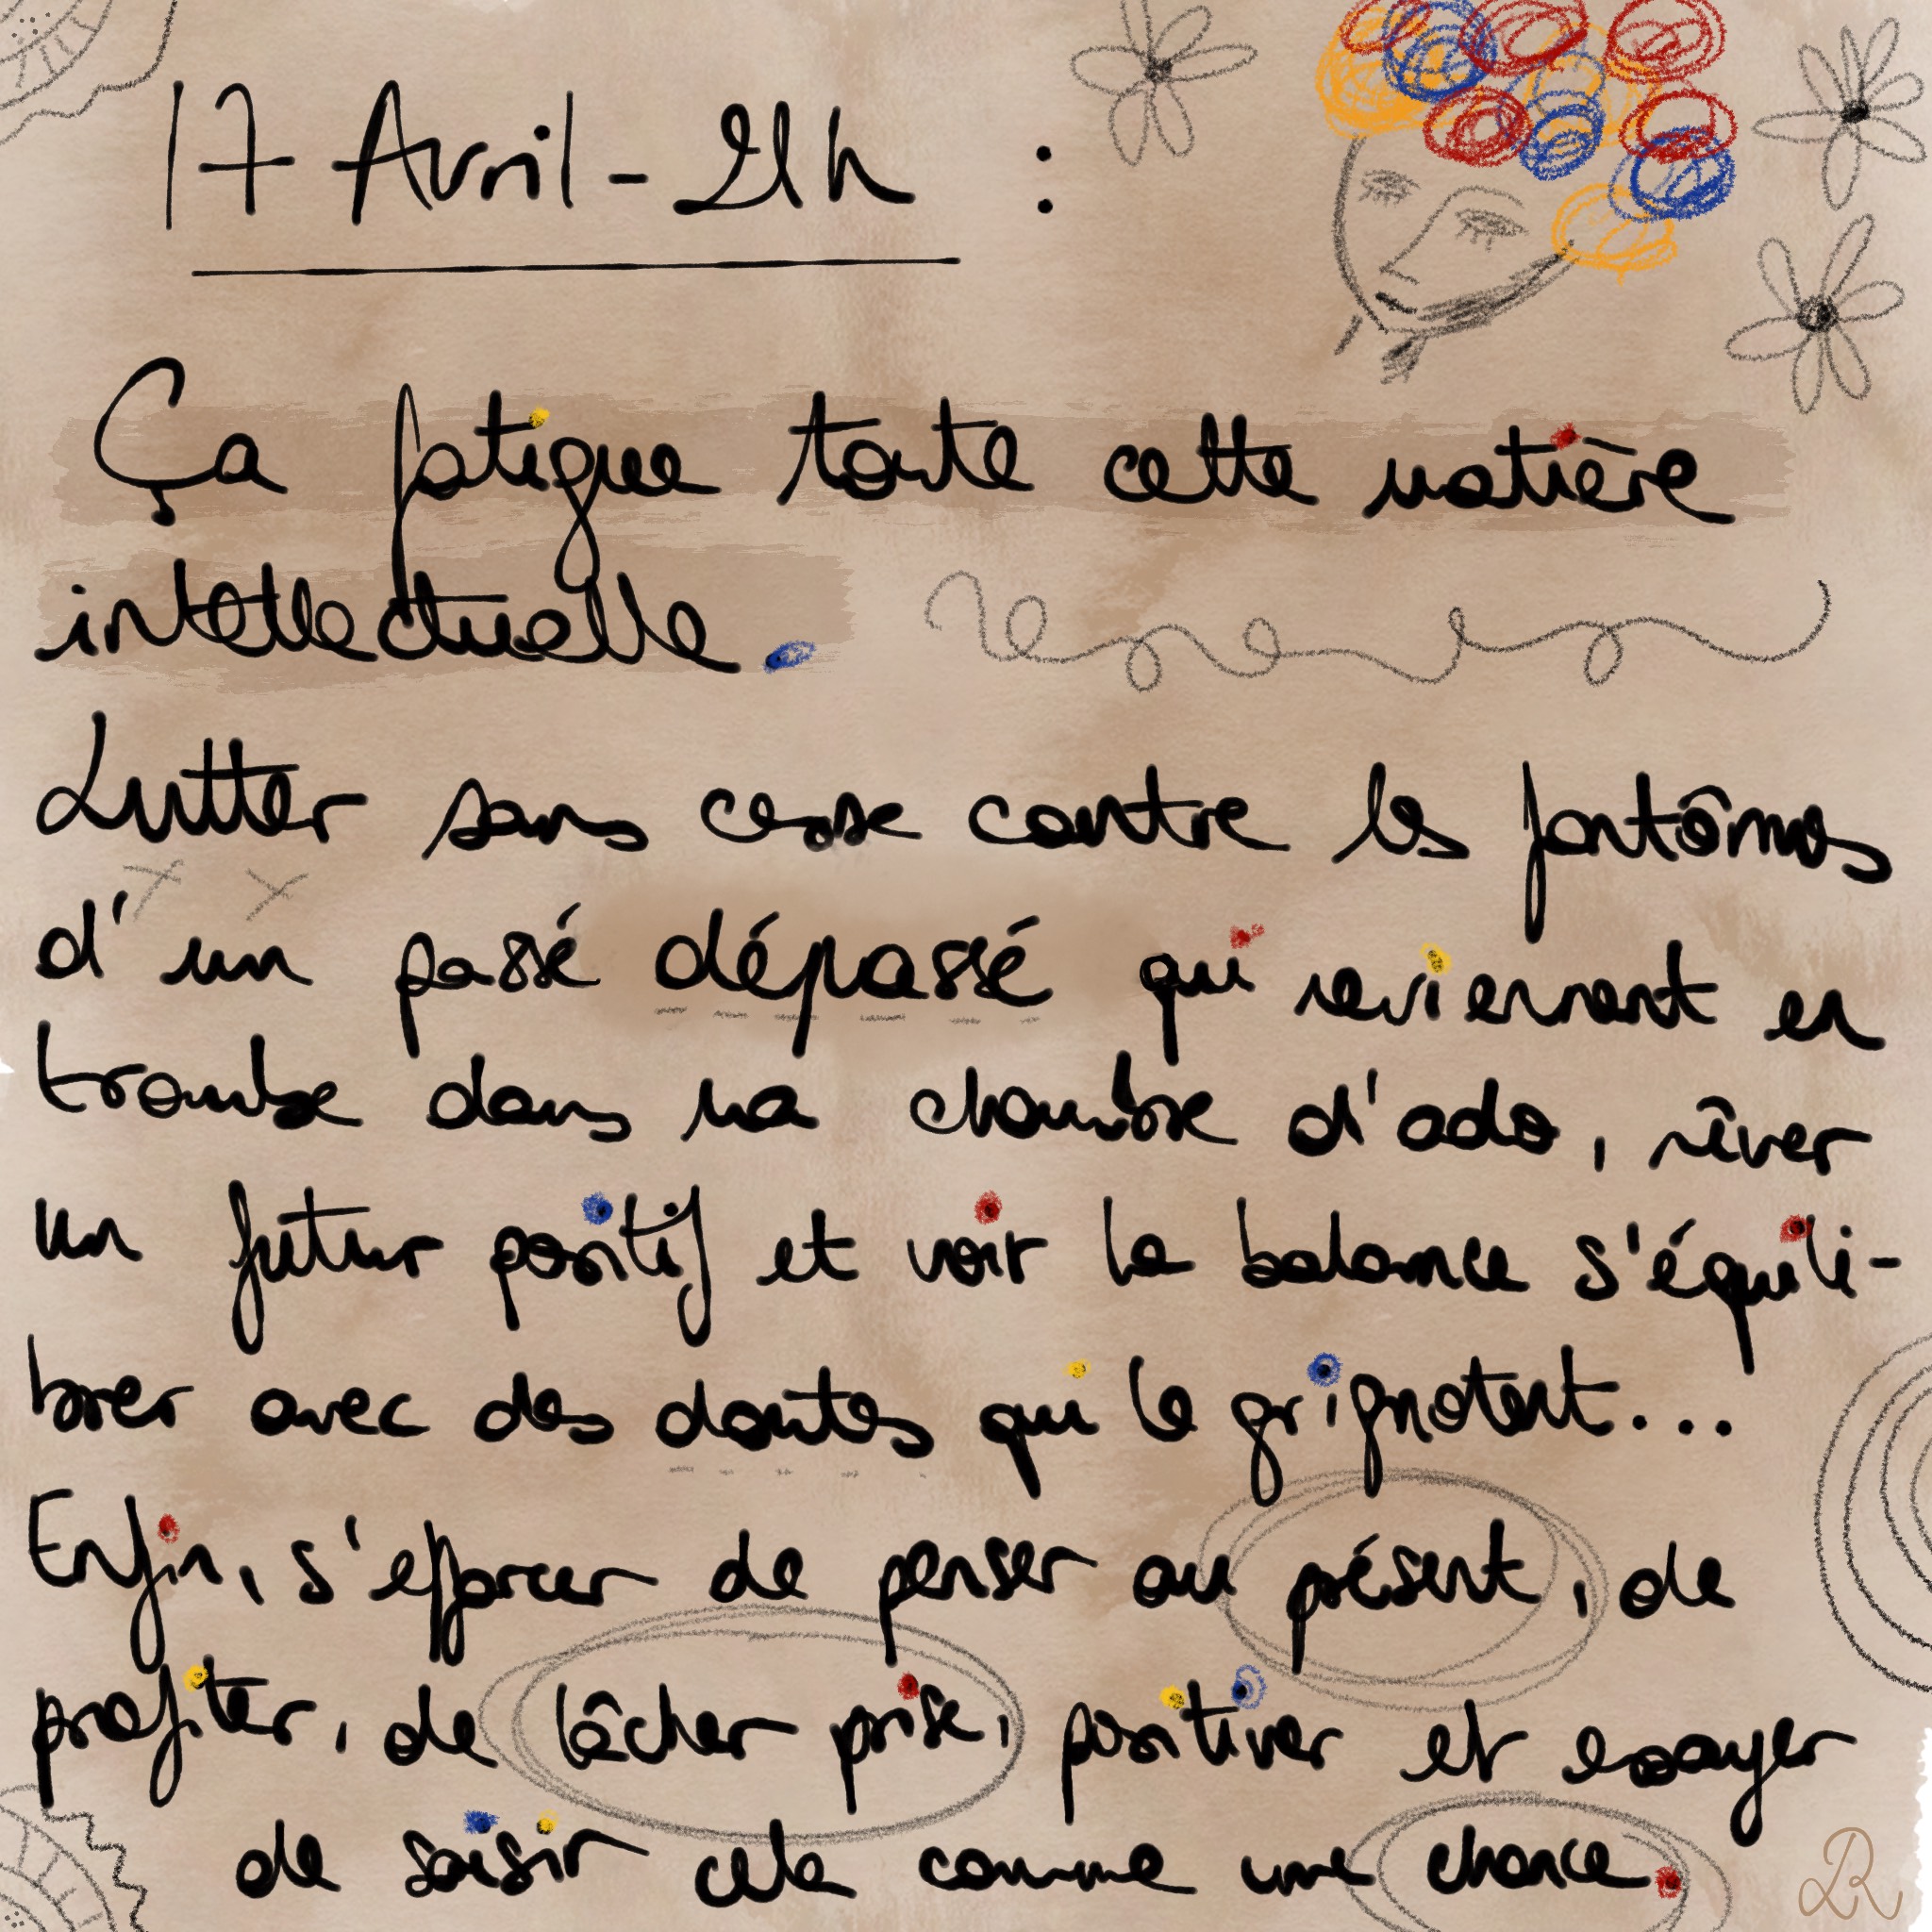 17 Avril - 21h :
Ça fatigue toute cette matière
intellectuelle.
Lutter sans cesse contre les fantômes
d'un passé dépassé qui reviennent en
trombe dans ma chambre d'ado, rêver
un futur positif et voir la balance s'équili-
brer avec des doutes qui le grignotent...
Enfin, s'efforcer de penser au présent, de
profiter, de lâcher prise, positiver et essayer
de saisir cela comme une chance.
LR